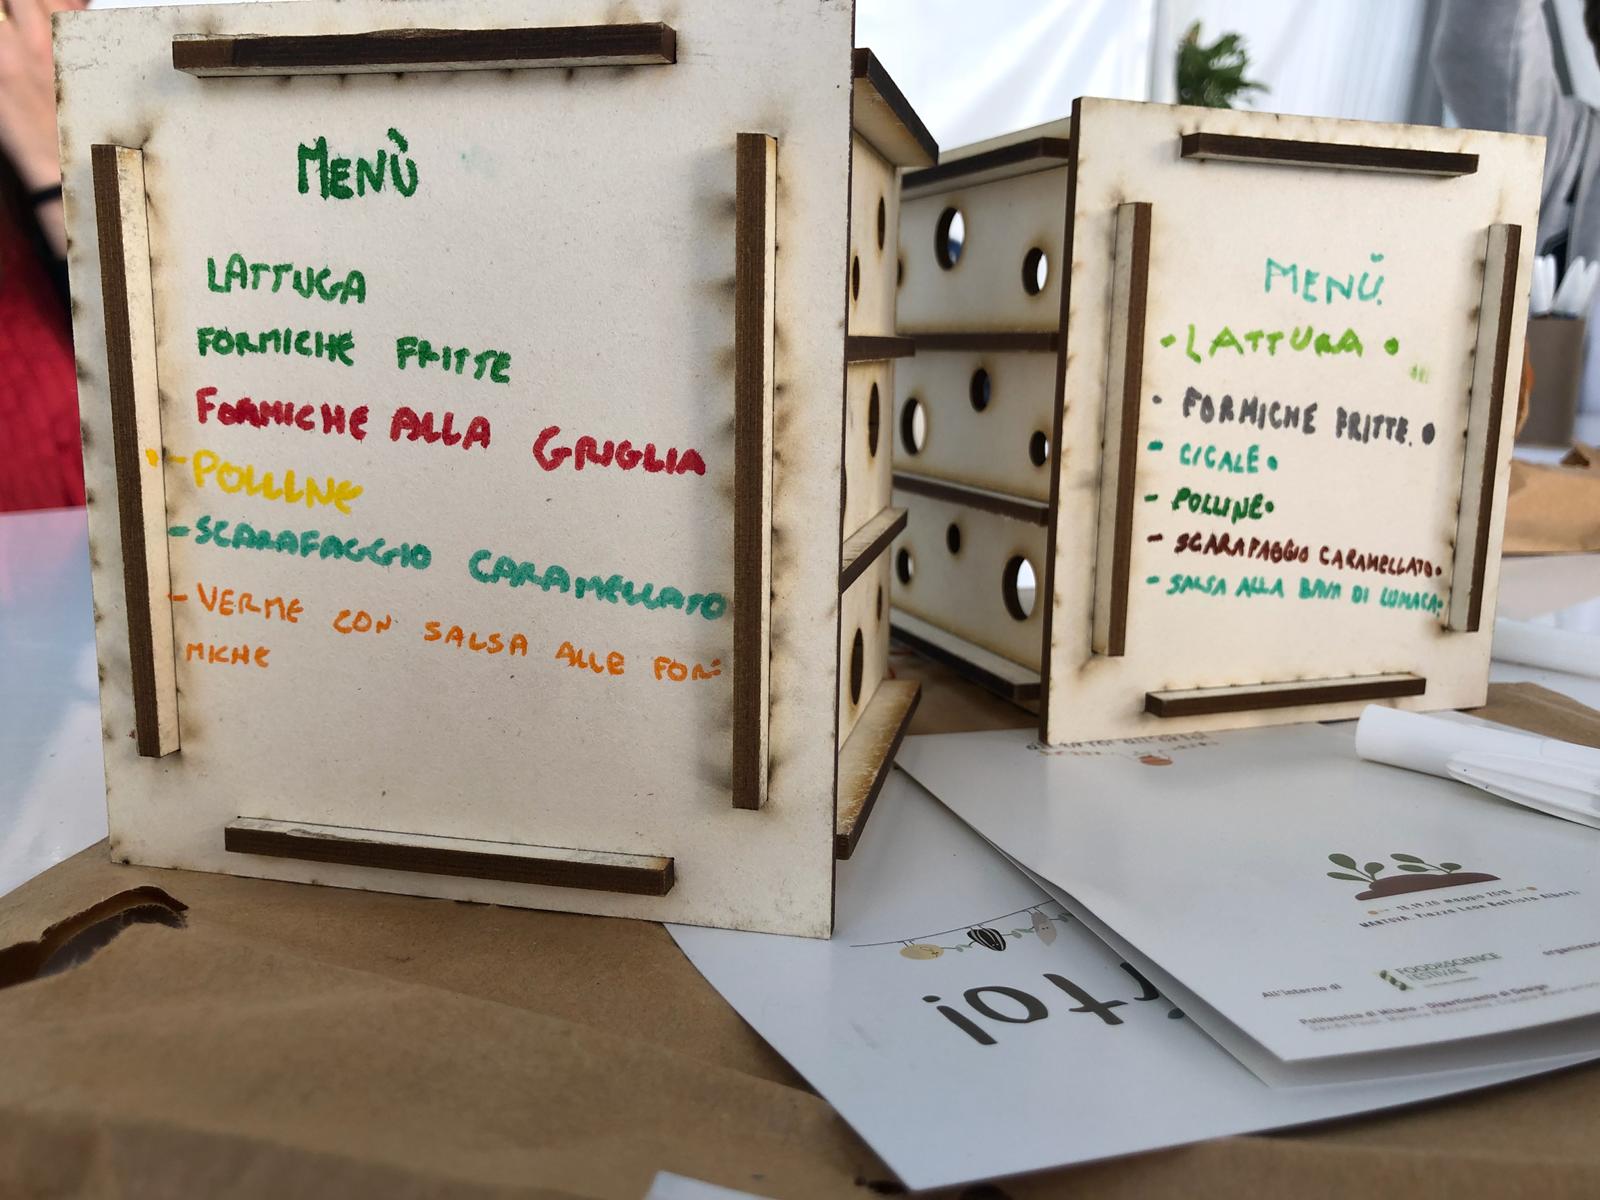 MENÙ
LATTUGA
FORMICHE FRITTE
FORMICHE ALLA GRIGLIA
-POLLINE
-SCARAFAGGIO CARAMELLATO
-VERME CON SALSA ALLE FOR-
MICHE
MENÙ.
•LATTURA •
• FORMICHE FRITTE. •
- CICALE•
- POLLINE•
- SCARAFAGGIO CARAMELLATO•
- SALSA ALLA BAVA DI LUMACA•
rto!
18.19.20 maggio 2018
MANTOVA, Piazza Leon Battista Alberti
All'interno di
FOOD&SCIENCE
FESTIVAL
Politecnico di Milano - Dipartimento di Design